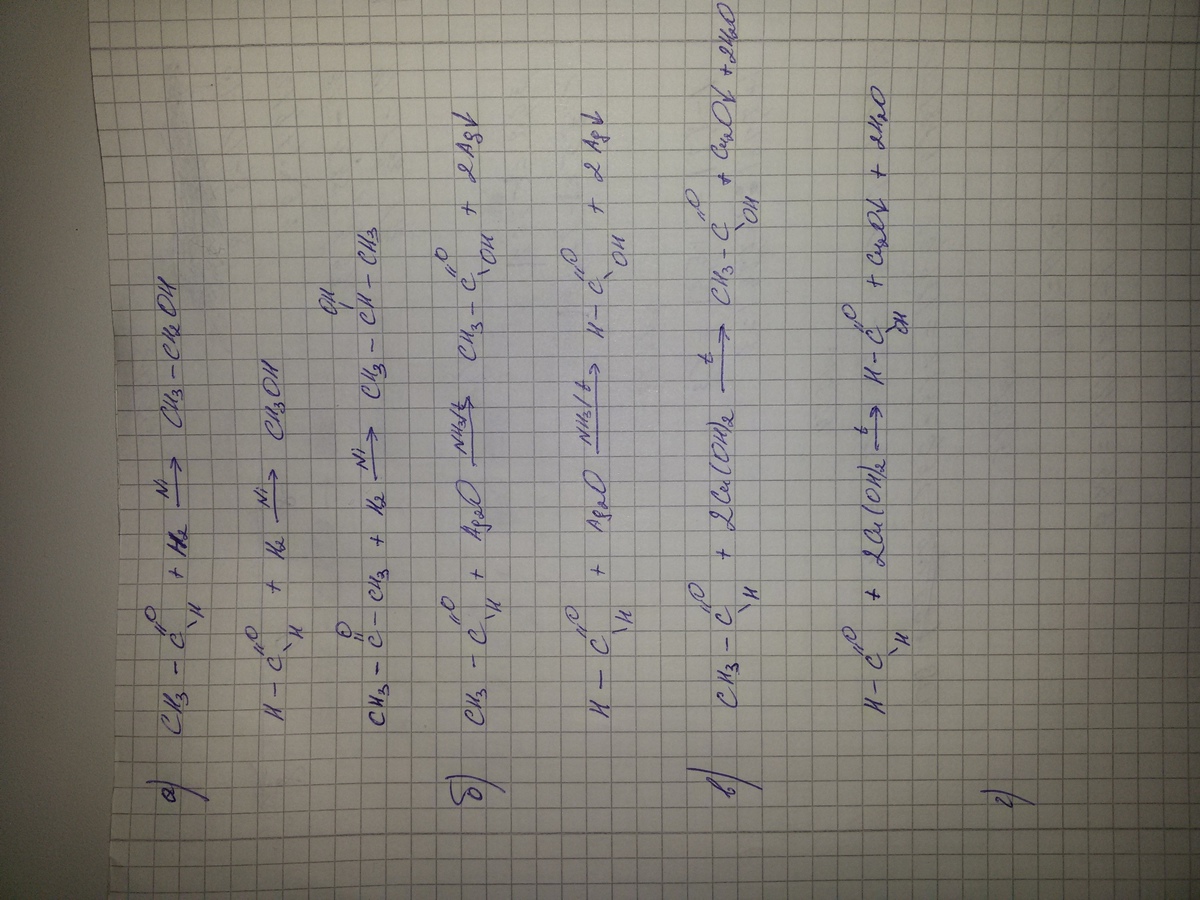 а) CH3 – C(=O)(–H) + H2 –Ni→ CH3 – CH2OH
H – C(=O)(–H) + H2 –Ni→ CH3OH
CH3 – C(=O) – CH3 + H2 –Ni→ CH3 – CH(OH) – CH3
б) CH3 – C(=O)(–H) + Ag2O –NH3/t→ CH3 – C(=O)(–OH) + 2Ag↓
H – C(=O)(–H) + Ag2O –NH3/t→ H – C(=O)(–OH) + 2Ag↓
в) CH3 – C(=O)(–H) + 2Cu(OH)2 –t→ CH3 – C(=O)(–OH) + Cu2O↓ + 2H2O
H – C(=O)(–H) + 2Cu(OH)2 –t→ H – C(=O)(–OH) + Cu2O↓ + 2H2O
г)